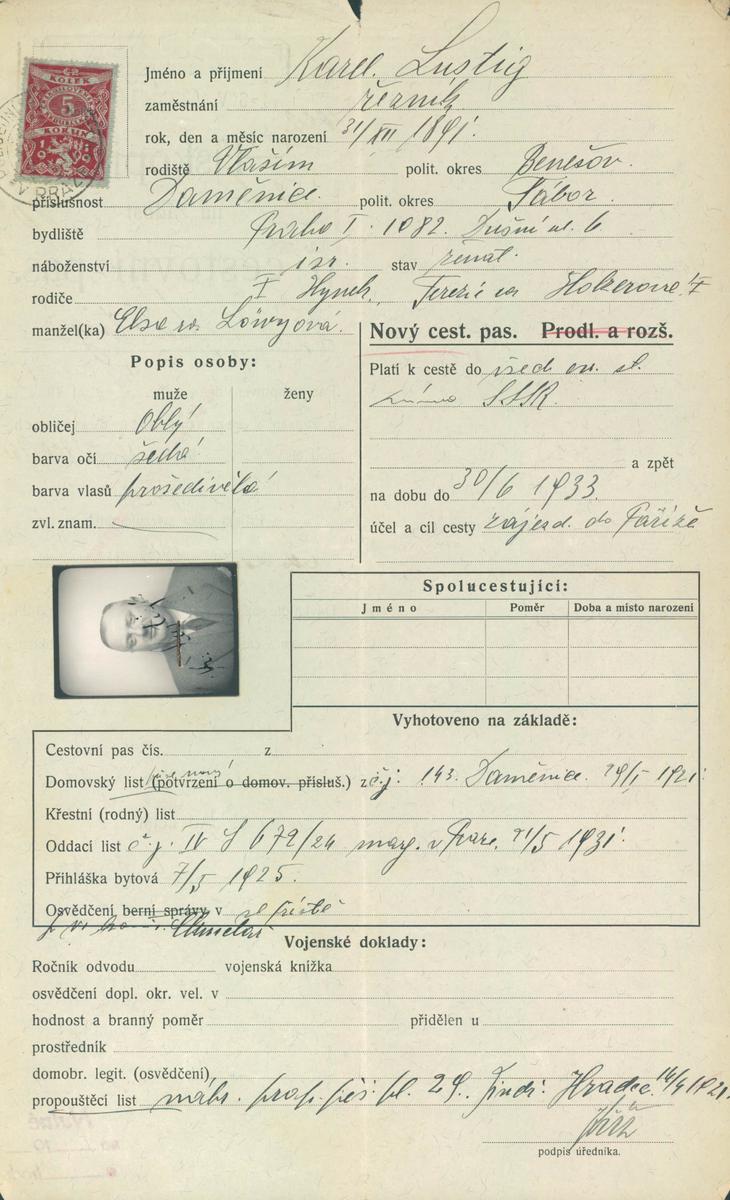 KOLEK
5
KORUN
V PRAZE
Jméno a příjmení Karel Lustig
zaměstnání řezník
rok, den a měsíc narození 31/XII 1891.
rodiště Vlašim polit. okres Benešov.
příslušnost Daměnice. polit. okres Tábor.
bydliště Praha I. 1082. Dušní ul. 6
náboženství isr. stav ženat.
rodiče † Hynek, Terezie roz Holzerova †
manžel(ka) Elsa roz. Löwyová.
Nový cest. pas. Prodl. a rozš.
Popis osoby:
muže ženy
obličej Oblý
barva očí šedá
barva vlasů prošedivělá
zvl. znam.
Platí k cestě do všech ev. st.
SSSR.
a zpět
na dobu do 30/6 1933.
účel a cíl cesty zájezd. do Paříže
Spolucestující:
Jméno Poměr Doba a místo narození
Vyhotoveno na základě:
Cestovní pas čís. z
Domovský list (potvrzení o domov. přísluš.) z č.j. 143. Daměnice. 1921.
Křestní (rodný) list
Oddací list č.j. IV 679/24 mag. v Praze. 1931.
Přihláška bytová 7/5 1925.
Osvědčení berní správy v
Vojenské doklady:
Ročník odvodu vojenská knížka
osvědčení dopl. okr. vel. v
hodnost a branný poměr přidělen u
prostředník
domobr. legit. (osvědčení)
propouštěcí list náhr. prap. pěš. pl. 29. Jindř. Hradec. 14/4 1921.
podpis úředníka.